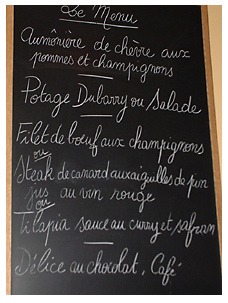 Le Menu
Aumônière de chèvre aux
pommes et champignons
Potage Dubarry ou Salade
Filet de bœuf aux champignons
ou
Steak de canard aux aiguilles de pin
jus au vin rouge
ou
Tilapia sauce au curry et safran
Délice au chocolat, Café